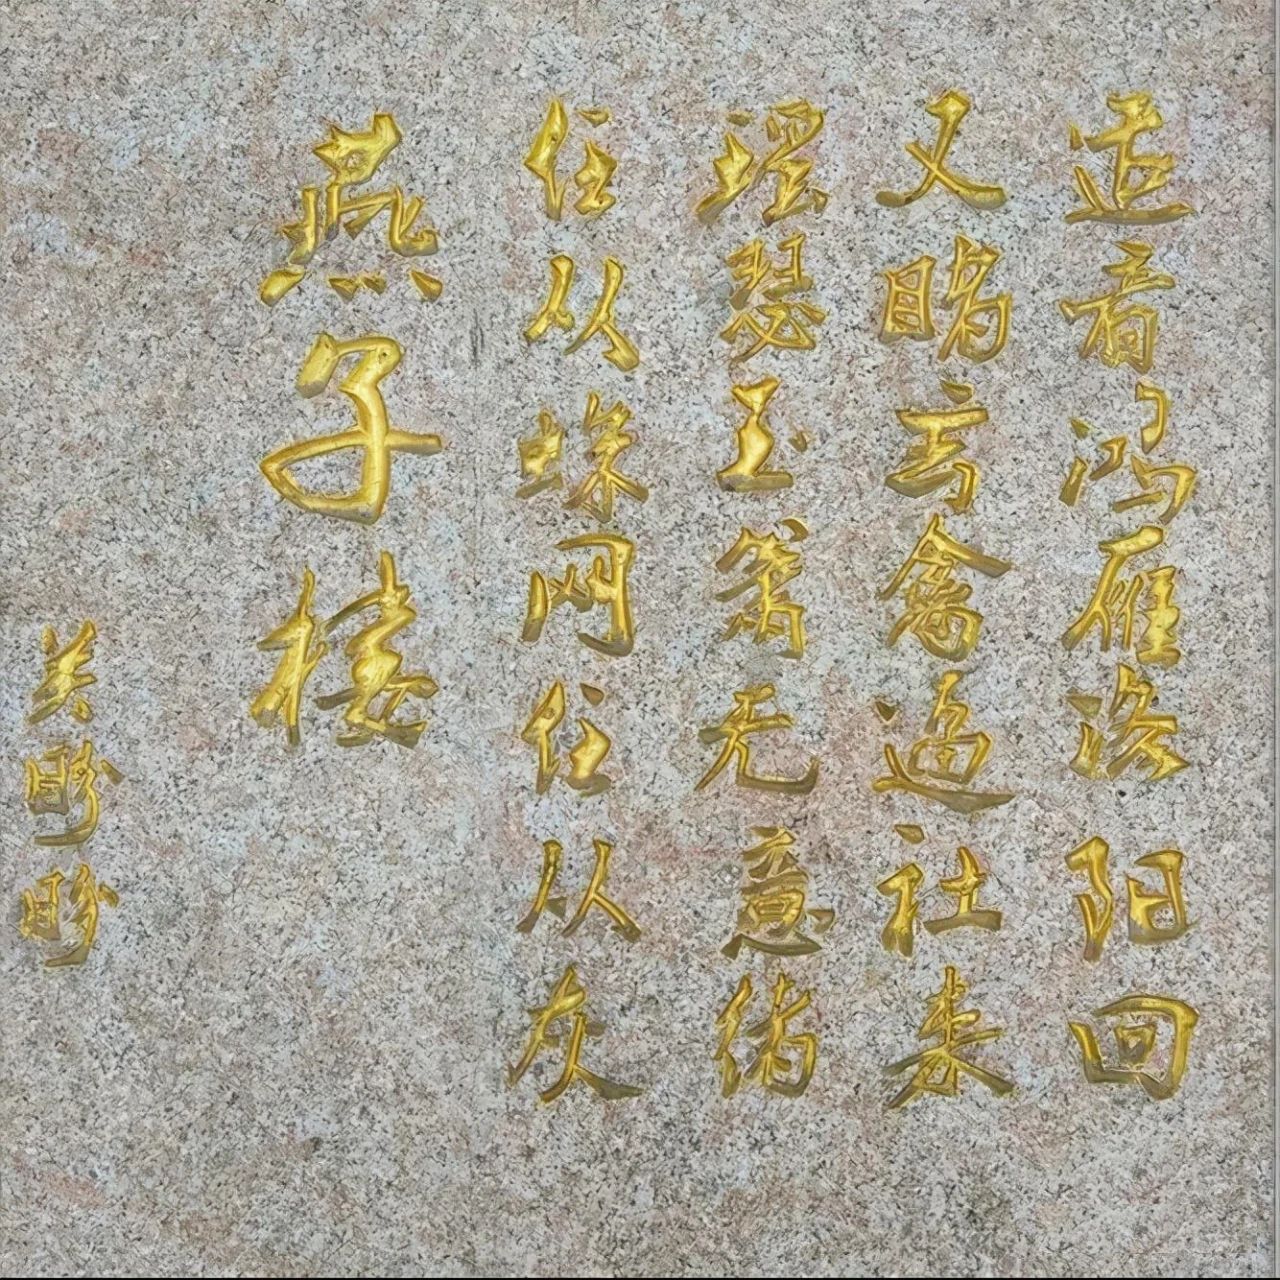 适看鸿雁洛阳回
又睹玄禽逼社来
瑶瑟玉箫无意绪
任从蛛网任从灰
燕子楼
关盼盼